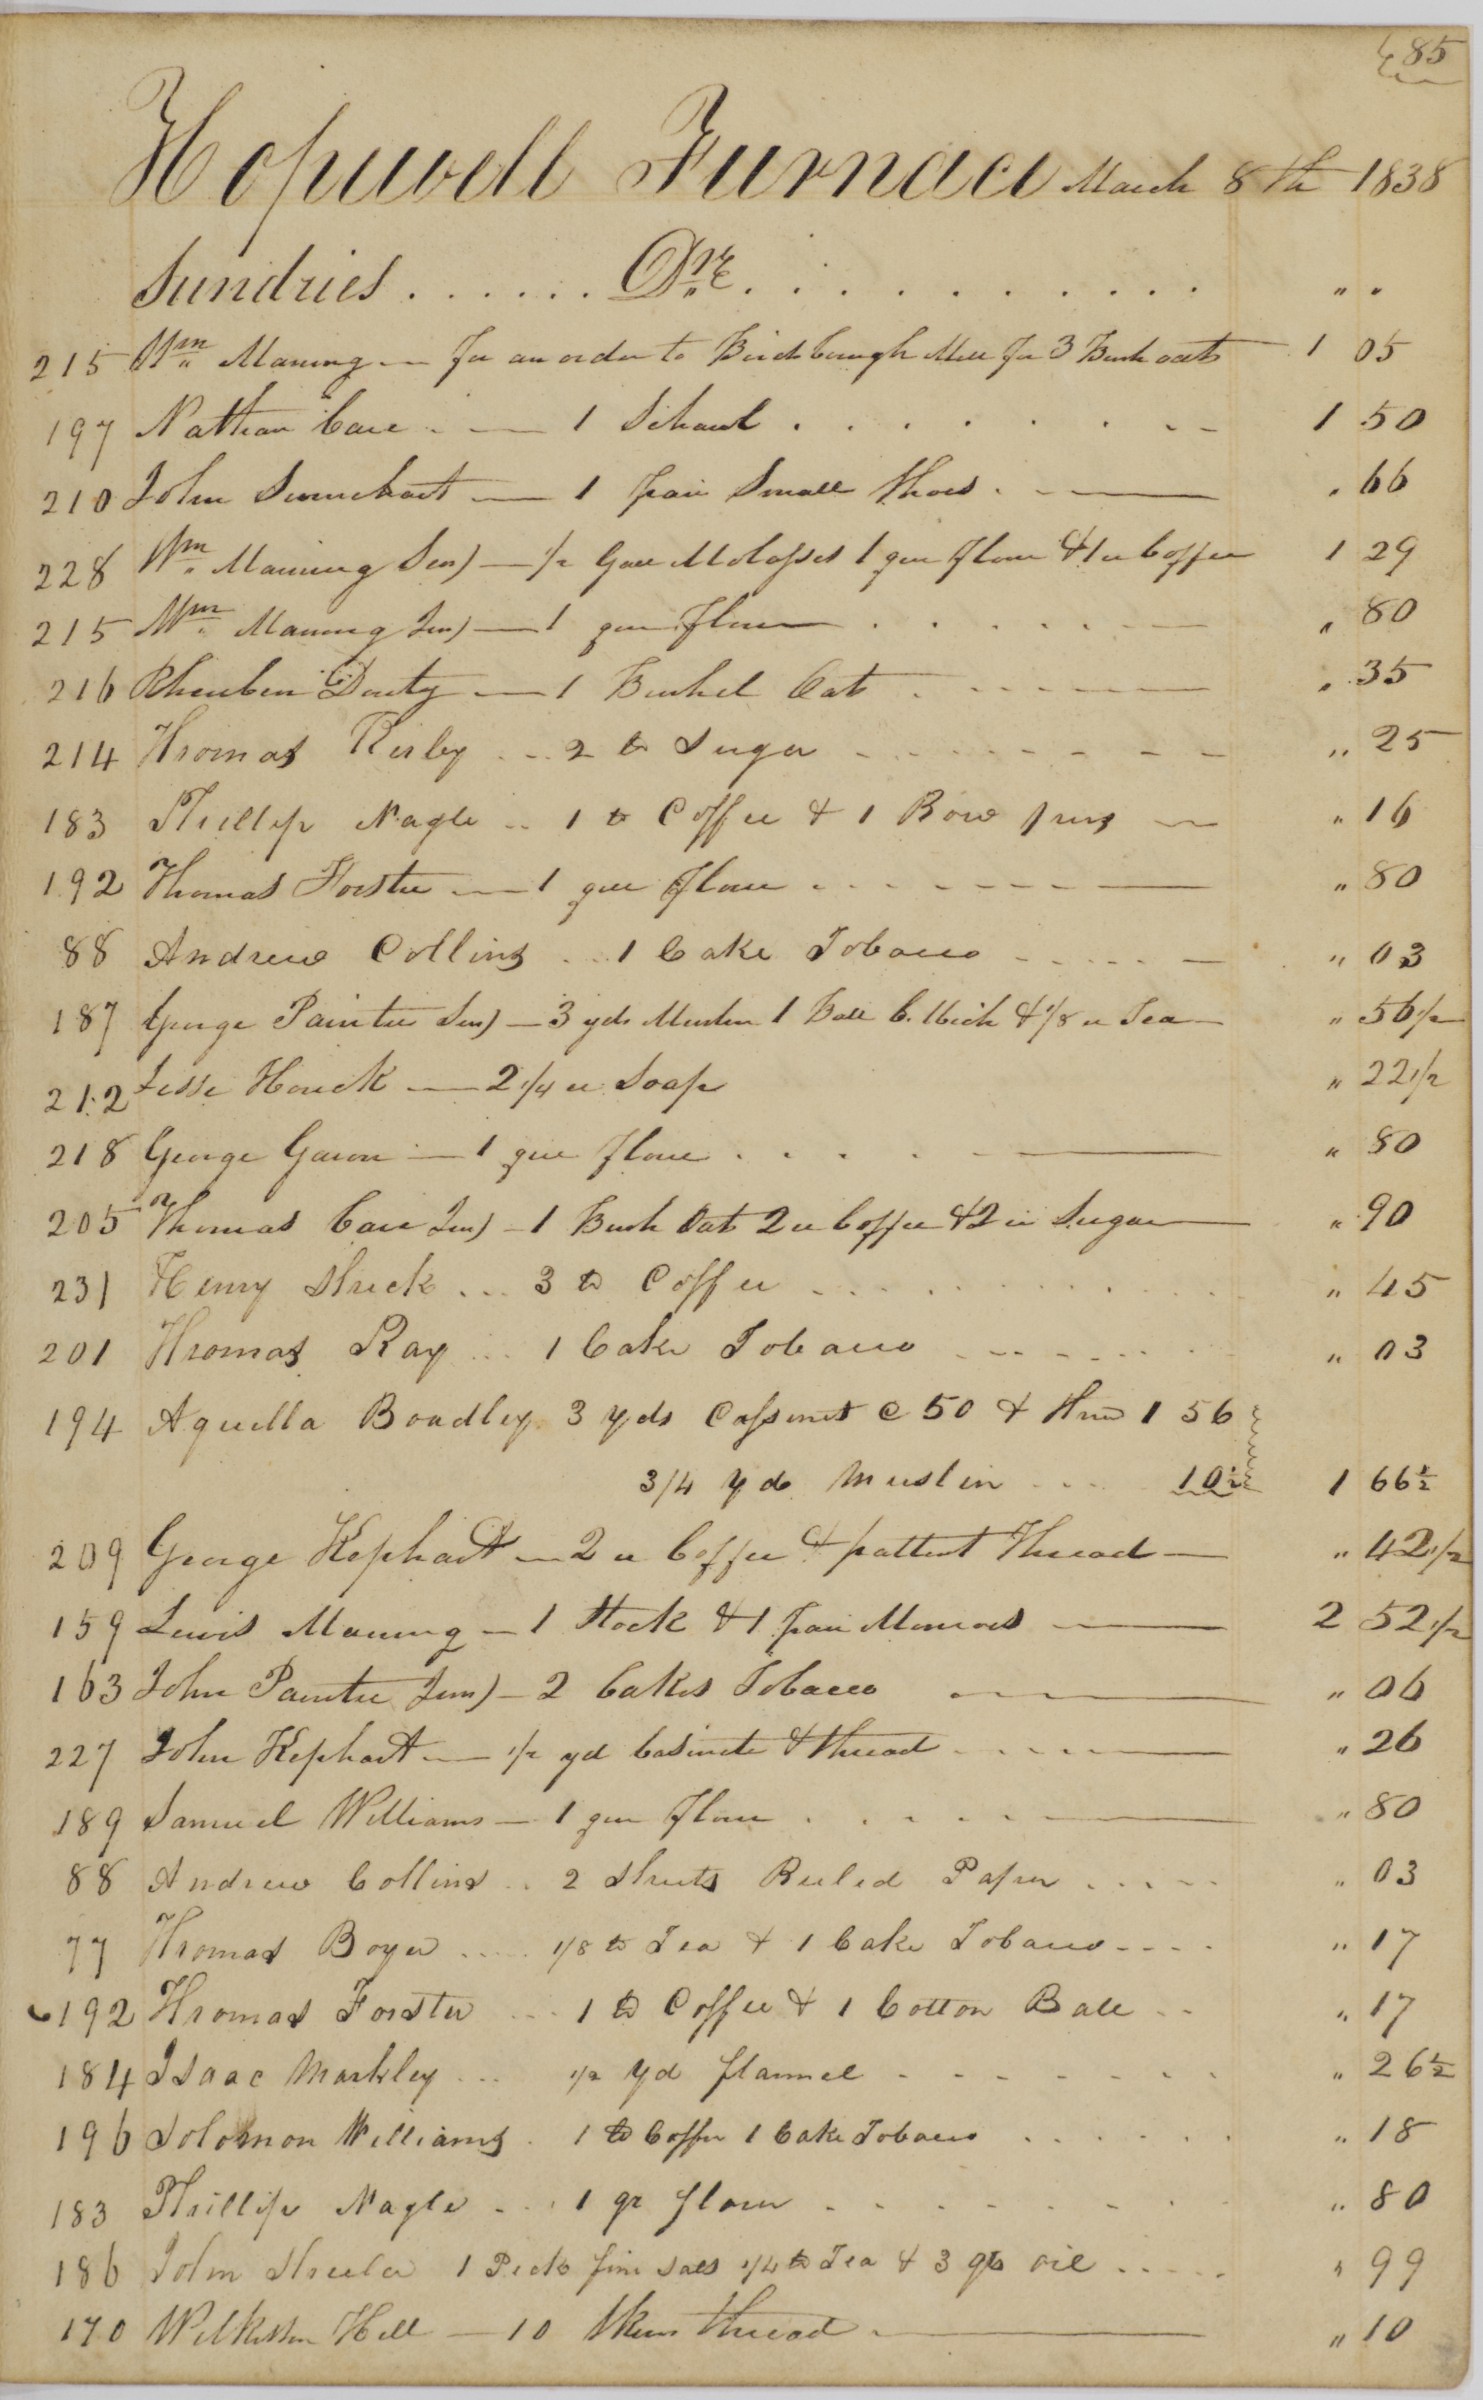 85
Hopewell Furnace March 8th 1838
Sundries . . . . . . Drs . . . . . . . . . . . " "
215 Wm Maning — for an order to Birdsborough Mill for 3 Bush oats — 1 05
197 Nathan Care — 1 Schawl . . . . . . . . 1 50
210 John Sinnehart — 1 pair Small Shoes . — " 66
228 Wm Maning Sen) — 1/2 Gall Molasses 1 qur flour & 1 lb Coffee 1 29
215 Wm Maning Jun) — 1 qur flour . . . . . . — " 80
216 Rheuben Douty — 1 Bushel Oats . . . . — " 35
214 Thomas Kirby . . 2 lb Sugar . . . . . . . " 25
183 Phillip Nagle . . 1 lb Coffee & 1 Row pins — " 16
192 Thomas Forster — 1 qur flour . . . . . — " 80
88 Andrew Collins . . 1 Cake Tobacco . . . . . — " 03
187 George Painter Sen) — 3 yds Muslin 1 Ball C. Wick & 1/8 lb Tea — " 56 1/2
212 Jesse Houck — 2 1/4 lb Soap " 22 1/2
218 George Gawn — 1 qur flour . . . . . — " 80
205 Thomas Care Jun) — 1 Bush Oats 2 lb Coffee & 2 lb Sugar — " 90
231 Henry Shick . . . 3 lb Coffee . . . . . . . . " 45
201 Thomas Ray . . . 1 Cake Tobacco . . . . . . . " 03
194 Aquilla Boadley 3 yds Cassinet @ 50 & Thrd 1 56
3/4 yds Muslin . . . . 10 1/2 1 66 1/2
209 George Kephart — 2 lb Coffee & pattent Thread — " 42 1/2
159 Lewis Maning — 1 Stock & 1 pair Monroes — 2 52 1/2
163 John Painter Jun) — 2 Cakes Tobacco — " 06
227 John Kephart — 1/2 yd Casinete & thread . . . — " 26
189 Samuel Williams — 1 qur flour . . . . . — " 80
88 Andrew Collins . . 2 Sheets Ruled Paper . . . . . " 03
77 Thomas Boyer . . . . 1/8 lb Tea & 1 Cake Tobacco . . . . " 17
192 Thomas Forster . . . 1 lb Coffee & 1 Cotton Ball . . " 17
184 Isaac Markley . . . 1/2 yd flannel . . . . . . . " 26 1/2
196 Solomon Williams . 1 lb Coffee 1 Cake Tobacco . . . . . . " 18
183 Phillip Nagle . . . 1 qr flour . . . . . . . . " 80
186 John Sheeler 1 Peck fine Salt 1/4 lb Tea & 3 qts oil . . . . . " 99
170 Wilkison Hill — 10 Skeins thread — " 10